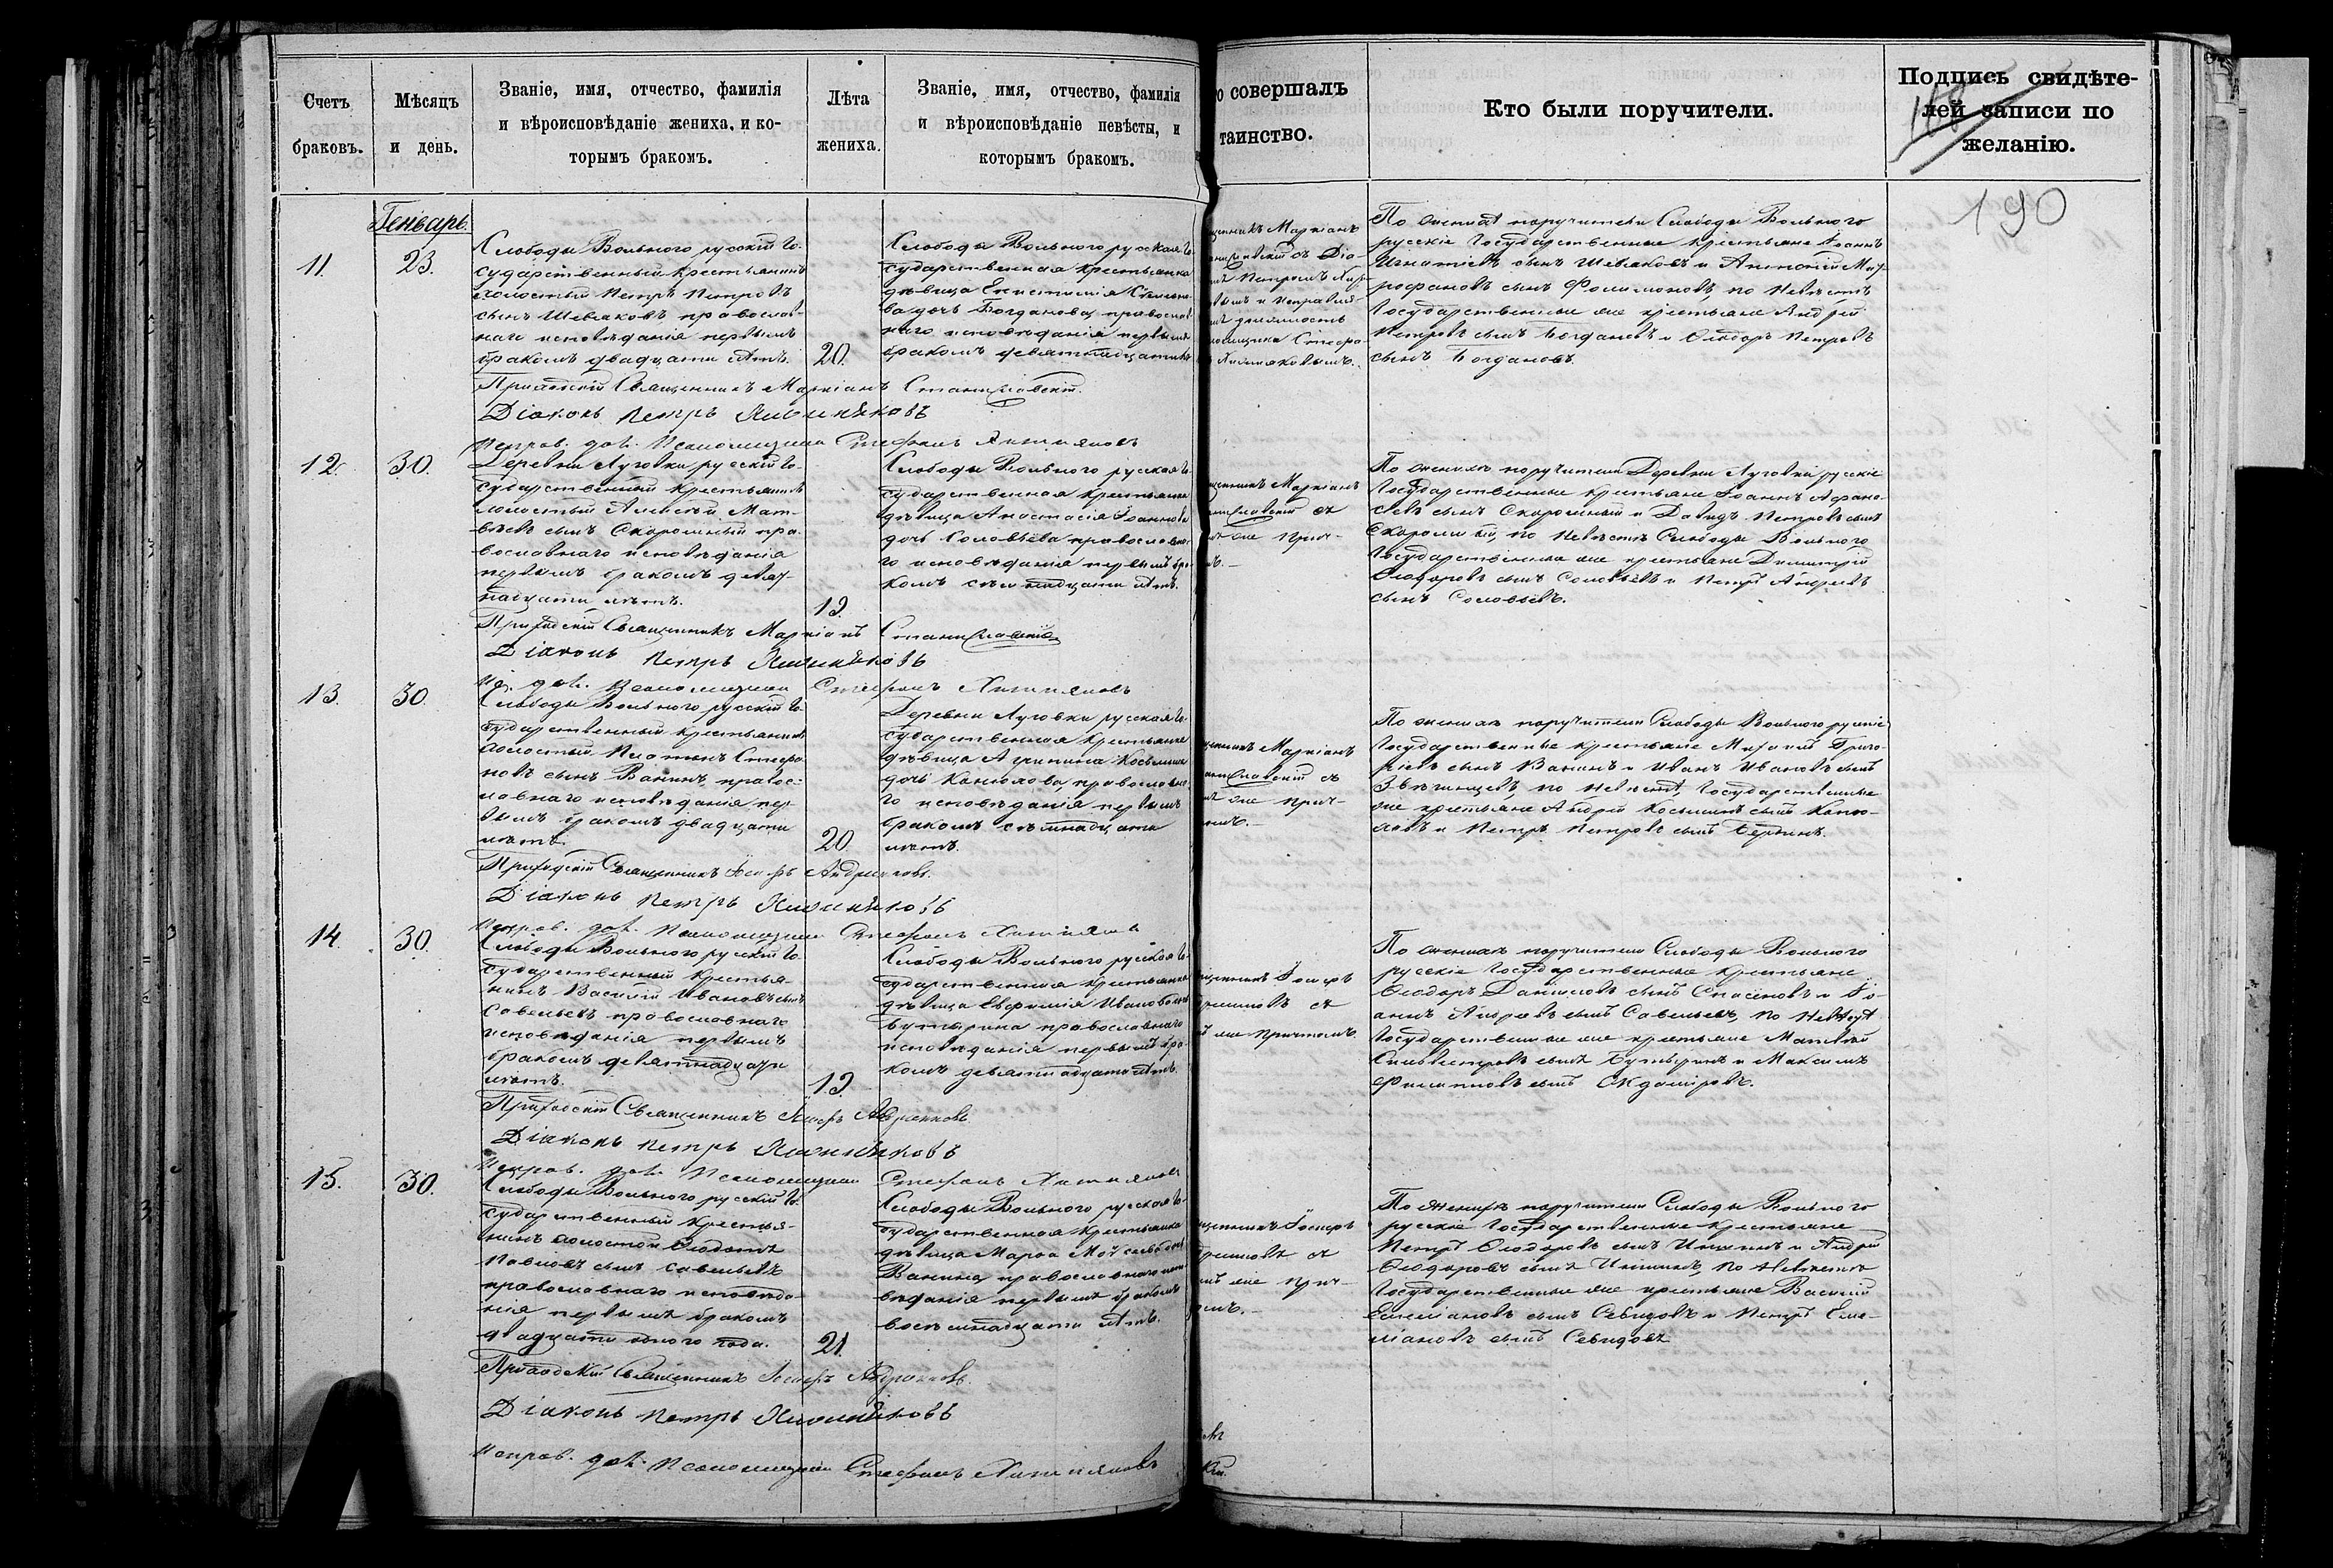 Счетъ
браковъ.
Мѣсяцъ
и день.
Званіе, имя, отчество, фамилія
и вѣроисповѣданіе жениха, и ко-
торымъ бракомъ.
Лѣта
жениха.
Званіе, имя, отчество, фамилія
и вѣроисповѣданіе невѣсты, и
которымъ бракомъ.
о совершалъ
таинство.
Кто были поручители.
Подпись свидѣте-
лей записи по
желанію.
190
Генварь.
11.
23.
Слободы Вольного русскій Го-
сударственный крестьянинъ
холостый Петръ Петровъ
сынъ Шевляковъ, православ-
наго исповѣданія первымъ
бракомъ двадцати лѣтъ.
20.
Слободы Вольного русская Го-
сударственная крестьянка
дѣвица
дочь Богданова, православ
наго исповѣданія первымъ
бракомъ девятнадцати
щенникъ Маркіанъ
съ Діа-
Петромъ
и исправля-
должность
Стефа
По женихѣ поручители Слободы Вольного
русскіе Государственные крестьяне Іоаннъ
Игнатіевъ сынъ Шевляковъ и Антоній Мит-
рофановъ сынъ Филимоновъ, по невѣстѣ
Государственные же крестьяне Андрей
Петровъ сынъ Богдановъ и Ѳеодоръ Петровъ
сынъ Богдановъ.
Приходскій Священникъ Маркіанъ Станиславскій.
Діаконъ Петръ
Исправ. дол. Псаломщика Стефанъ
12.
30.
Деревни Луговки русскій Го-
сударственный крестьянинъ
холостый Алексѣй Мат-
вѣевъ сынъ Скороминый пра-
вославнаго исповѣданія
первымъ бракомъ девят-
надцати лѣтъ.
19.
Слободы Вольного русская Го-
сударственная крестьянка
дѣвица Анастасія Іоаннова
дочь Соловьева православна-
го исповѣданія первымъ бра-
комъ семнадцати лѣтъ.
щенникъ Маркіанъ
съ
же прич-
По женихѣ поручители Деревни Луговки русскіе
Государственные крестьяне Іоаннъ Афана-
сіевъ сынъ Скороминый и Давидъ Петровъ сынъ
Скороминый, по невѣстѣ Слободы Вольного
Государственные же крестьяне Димитрій
Ѳеодоровъ сынъ Соловьевъ и Петръ Андреевъ
сынъ Соловьевъ.
Приходскій Священникъ Маркіанъ Станиславскій
Діаконъ Петръ
Ис. дол. Псаломщика Стефанъ
13.
30.
Слободы Вольного русскій Го-
сударственный крестьянинъ
холостый Платонъ Стефа
новъ сынъ Ванинъ, правос-
лавнаго исповѣданія пер
вымъ бракомъ двадцати
лѣтъ.
20.
Деревни Луговки русская Го-
сударственная крестьянка
дѣвица Агрипина Косьмина
дочь православна
го исповѣданія первымъ
бракомъ семнадцати
лѣтъ.
щенникъ Маркіанъ
съ
же прич-
По женихѣ поручители Слободы Вольного русскіе
Государственные крестьяне Григо-
рьевъ сынъ Ванинъ и Иванъ Ивановъ сынъ
Звягинцевъ, по невѣстѣ, Государственные
же крестьяне Андрей Косьминъ сынъ
и Петръ Петровъ сынъ
Приходскій Священникъ Іосифъ Андрониковъ.
Діаконъ Петръ
Исправ. дол. Псаломщика Стефанъ
14.
30.
Слободы Вольного русскій Го-
сударственный крестья-
нинъ Василій Ивановъ сынъ
Савельевъ православнаго
исповѣданія первымъ
бракомъ девятнадцати
лѣтъ.
19.
Слободы Вольного русская Го-
сударственная крестьянка
дѣвица Евфимія Иванова
Бутырина православнаго
исповѣданія первымъ бра-
комъ девятнадцати лѣтъ.
щенникъ Іосифъ
съ
же причтомъ.
По женихѣ поручители Слободы Вольного
русскіе Государственные крестьяне
Ѳеодоръ Даниловъ сынъ и Іо-
аннъ Андреевъ сынъ Савельевъ, по невѣстѣ
Государственные же крестьяне Матвѣй
Сильвестровъ сынъ Бутыринъ и Максимъ
Филиповъ сынъ
Приходскій Священникъ Іосифъ Андрониковъ
Діаконъ Петръ
Исправ. дол. Псаломщика Стефанъ
15.
30.
Слободы Вольного русскій Го-
сударственный крестья-
нинъ холостой Ѳеодотъ
Павловъ сынъ Савельевъ
православнаго исповѣда-
нія первымъ бракомъ
двадцати одного года.
21.
Слободы Вольного русская Го-
сударственная крестьянка
дѣвица Марѳа
Ванина, православнаго испо
вѣданія первымъ бракомъ
восемнадцати лѣтъ.
щенникъ Іосифъ
съ
же прич-
По женихѣ поручители Слободы Вольного
русскіе Государственные крестьяне
Петръ Ѳеодоровъ сынъ и Андрей
Ѳеодоровъ сынъ по невѣстѣ
Государственные же крестьяне Василій
Емеліановъ сынъ Севидовъ и Петръ Еме-
ліановъ сынъ Севидовъ
Приходскій Священникъ Іосифъ Андрониковъ.
Діаконъ Петръ
Исправ. дол. Псаломщика Стефанъ